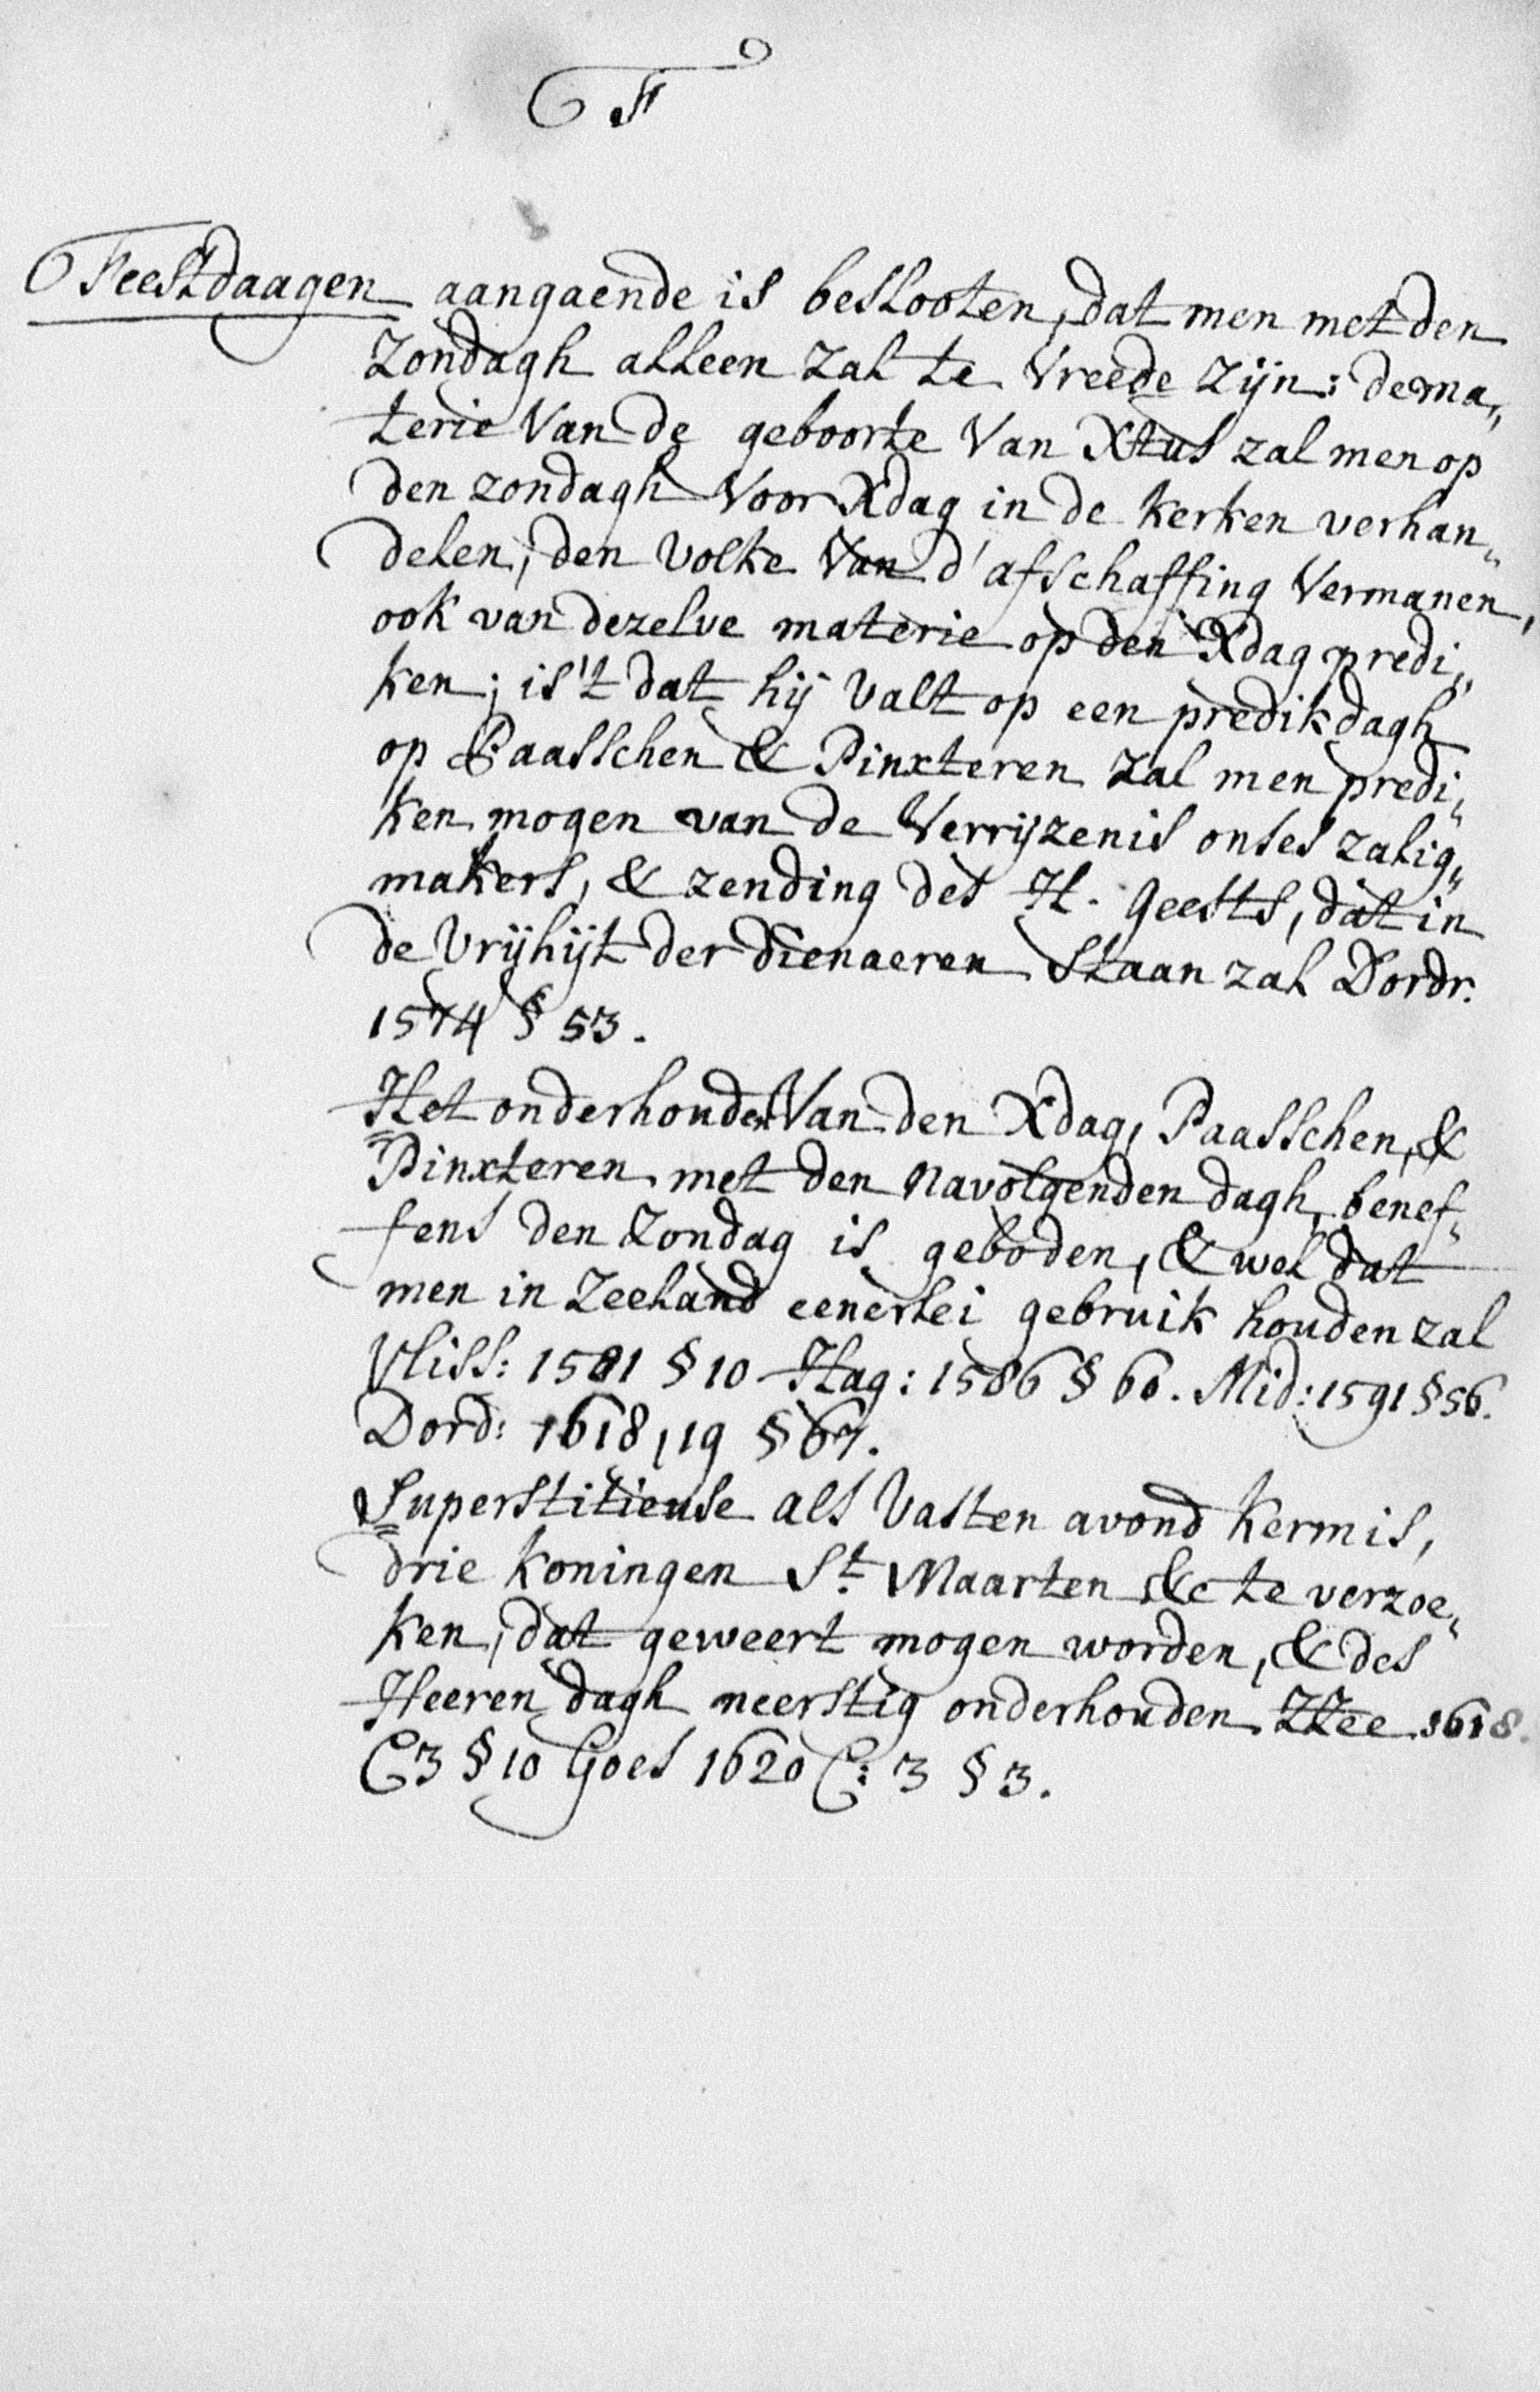 F
Feestdaagen aangaende is beslooten, dat men met den
Zondagh alleen zal te vreede zijn: de ma„
terie van de geboorte van Xtus zal men op
den zondagh voor Xdag in de kerken verhan„
delen, den volke van d'afschaffing vermanen,
ook van dezelve materie op den Xdag predi„
ken; is't dat hij valt op een predikdagh
op Paasschen & Pinxteren zal men predi„
ken mogen van de verrijzenis onses zalig„
makers, & zending des H. Geests, dat in
de vrijhijt der dienaeren staan zal Dordr.
1574 § 53.
Het onderhouden van den Xdag, Paasschen, &
Pinxteren met den navolgenden dagh, benef„
fens den Zondag is geboden, & wel dat
men in Zeeland eenerlei gebruik houden zal
Vliss: 1581 § 10 Hag: 1586 § 60. Mid: 1591 § 56.
Dord: 1618, 19 § 67.
Superstitieuse als vasten avond kermis,
drie koningen St. Maarten &c te verzoe„
ken, dat geweert mogen worden, & des
Heeren dagh neerstig onderhouden ZZee 1618.
C3 § 10 Goes 1620 C: 3 § 3.